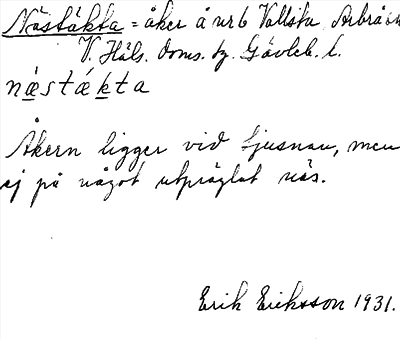 Näståkta = åker å nr 6 Vallsta Arbrå sn
V. Häls. doms. fg. Gävleb. l.
næstákta
Åkern ligger vid Ljusnan, men
ej på något utpräglat näs.
Erik Eriksson 1931.